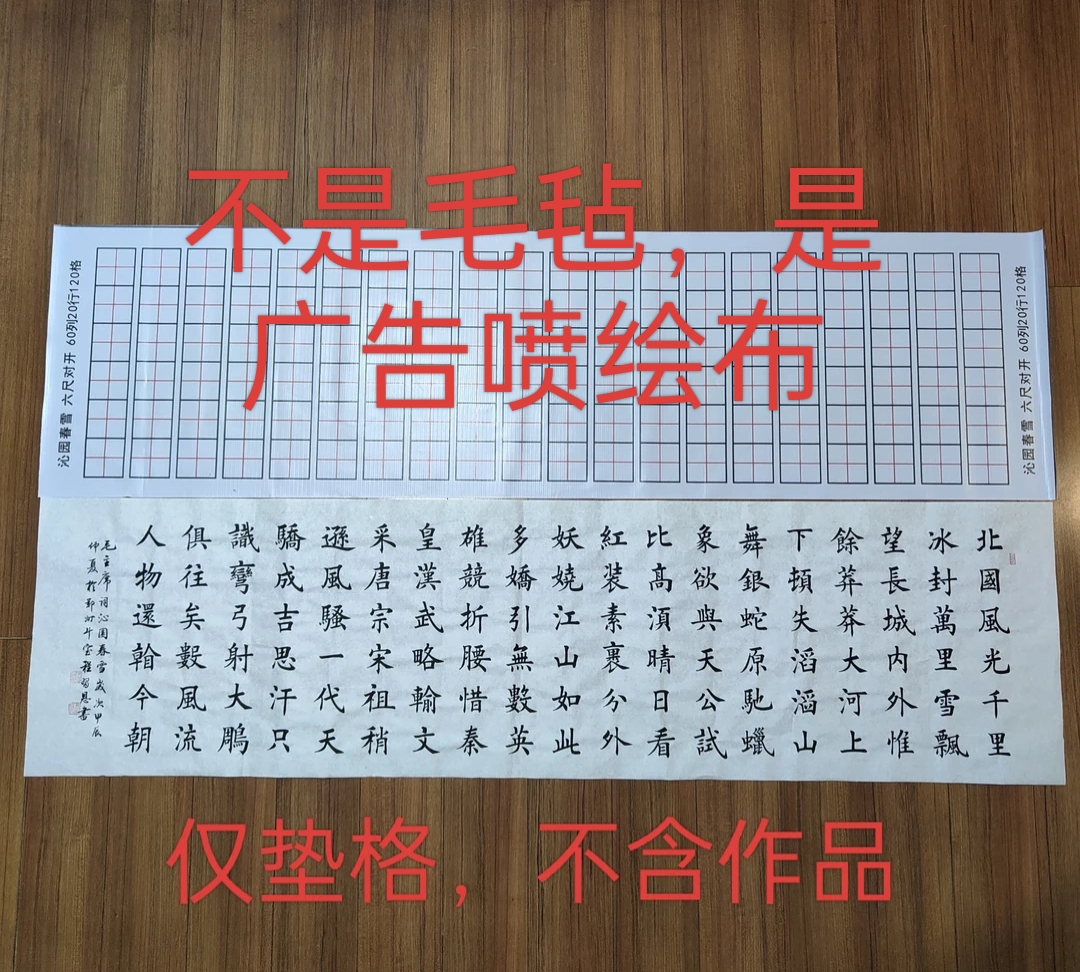 不是毛毡，是
广告喷绘布
沁园春雪 六尺对开 60列20行120格
沁园春雪 六尺对开 60列20行120格
北國風光千里
冰封萬里雪飄
望長城内外惟
餘莽莽大河上
下頓失滔滔山
舞銀蛇原馳蠟
象欲與天公試
比高湏晴日看
紅装素裹分外
妖嬈江山如此
多嬌引無數英
雄競折腰惜秦
皇漢武略輸文
采唐宗宋祖稍
遜風騷一代天
驕成吉思汗只
識彎弓射大鵰
俱往矣數風流
人物還翰今朝
毛主席詞沁園春雪歲次甲辰
仲夏於鄭州斗室程書
仅垫格，不含作品